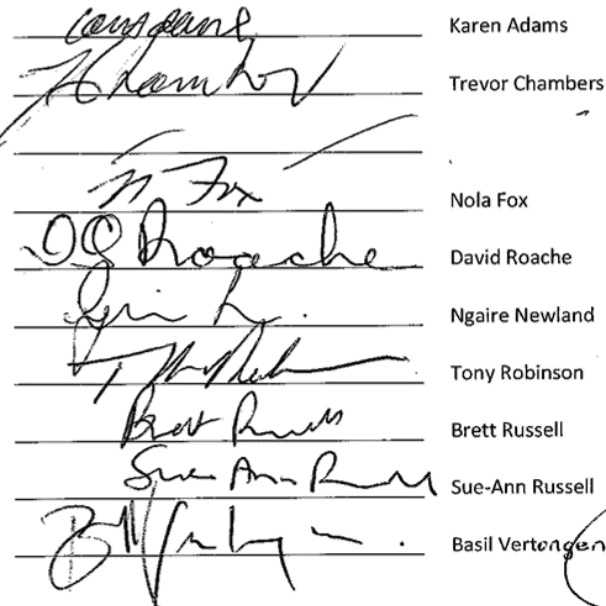 Karen Adams
Trevor Chambers
N Fox Nola Fox
DG Roache David Roache
Ngaire Newland
Tony Robinson
Brett Russell Brett Russell
Sue Ann Russell Sue-Ann Russell
Basil Vertongen